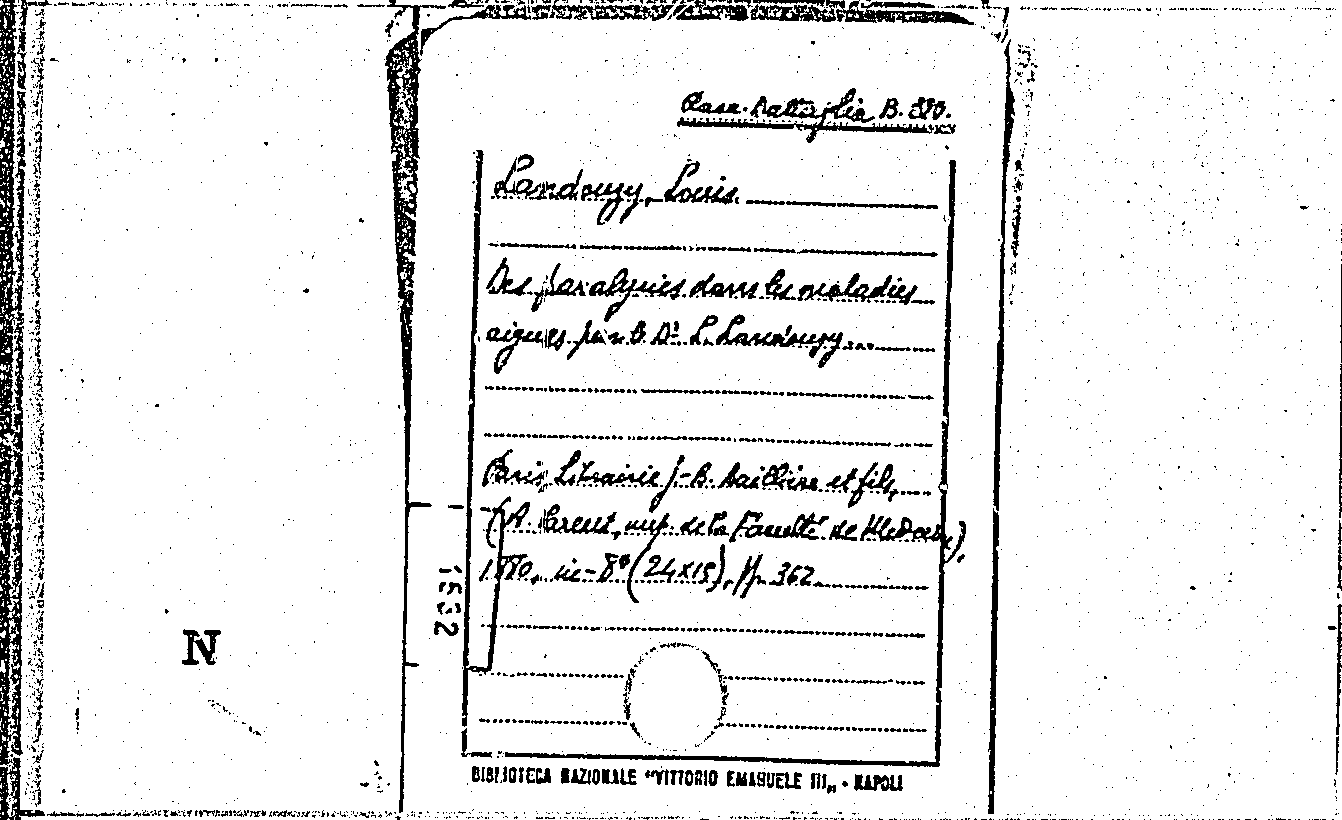 Racc. Battaglia B. 820.
Landouzy, Louis.
Des paralysies dans les maladies
aigues par le Dr. L. Landouzy...
Paris, Librairie J.-B. Baillière et fils,
(A. Parent, imp. de la Faculté de Médecin),
1880, in-8° (24x15), pp. 362.
1532
N
BIBLIOTECA NAZIONALE "VITTORIO EMANUELE III„ - NAPOLI